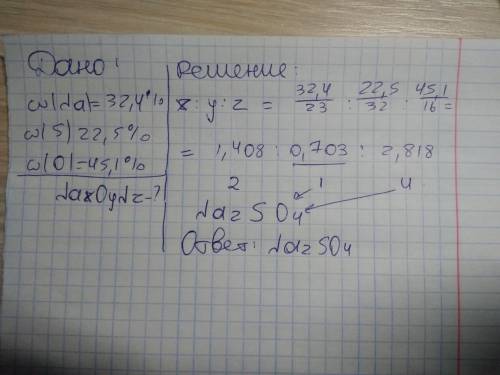 Дано:
ω(Na)=32,4%
ω(S) 22,5%
ω(O)=45,1%
NaxOyNz-?
Решение:
x:y:z = 32,4/23 : 22,5/32 : 45,1/16 =
= 1,408 : 0,703 : 2,818
2 1 4
Na2SO4
Ответ: Na2SO4